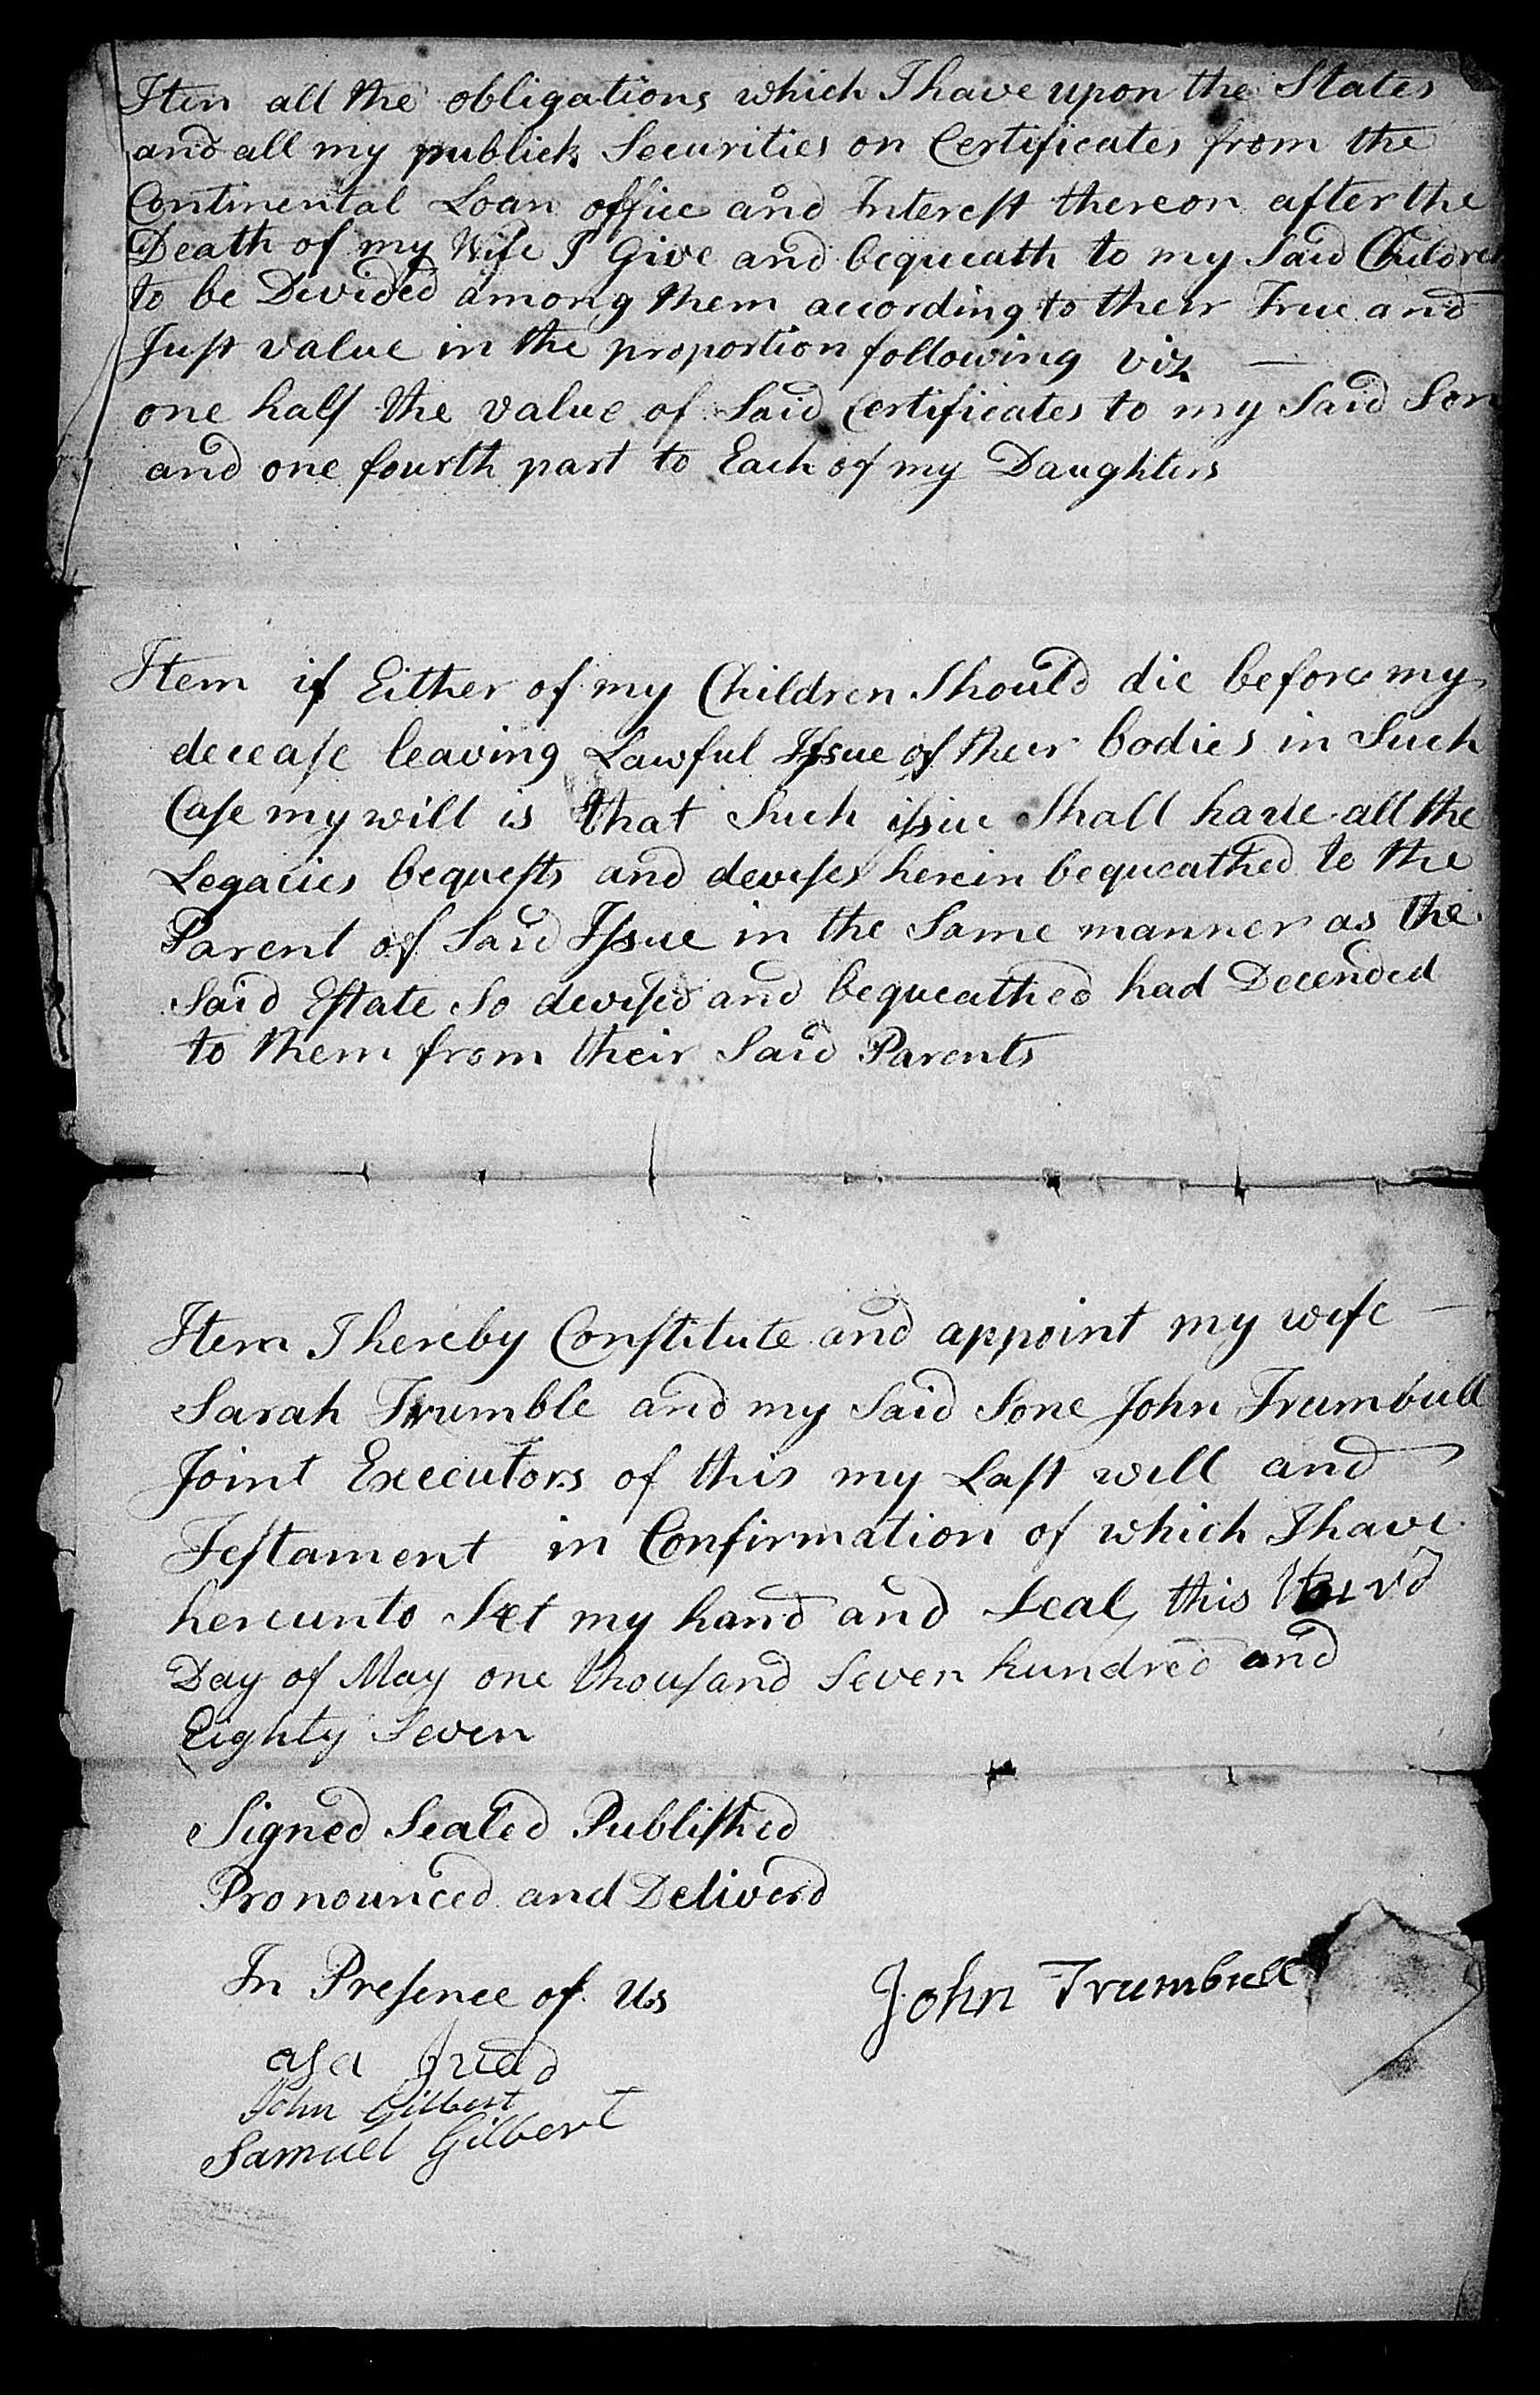 Item all the obligations which I have upon the States
and all my publick Securities on Certificates from the
Continental Loan office and Interest thereon after the
Death of my Wife I Give and bequeath to my Said Children
to be Devided among them according to their True and
Just value in the proportion following viz
one half the value of Said Certificates to my Said Son
and one fourth part to Each of my Daughters
Item if Either of my Children Should die before my
decease leaving Lawful Issue of their bodies in Such
Case my will is that Such issue Shall have all the
Legacies bequests and devises herein bequeathed to the
Parent of Said Issue in the Same manner as the
Said Estate So devised and bequeathed had Decended
to them from their Said Parents
Item I hereby Constitute and appoint my wife
Sarah Trumble and my Said Sone John Trumbull
Joint Executors of this my Last will and
Testament in Confirmation of which I have
hereunto Set my hand and Seal, this
Day of May one thousand Seven hundred and
Eighty Seven
Signed Sealed Published
Pronounced and Deliverd
In Presence of Us
John Trumbull
asa
John Gilbert
Samuel Gilbert